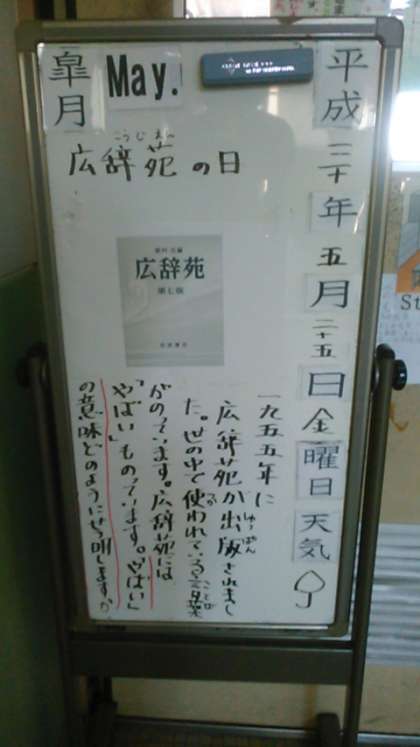 平成三十年五月二十五日金曜日天気
皐月
May.
こうじえん
広辞苑の日
新村 出編
広辞苑
第七版
岩波書店
一九五五年に
広辞苑が出版されまし
しゅっぱん
た。世の中で使われている言葉
ことば
がのっています。広辞苑には
「やばい」ものっています。「やばい」
の意味どのように説明しますか
St